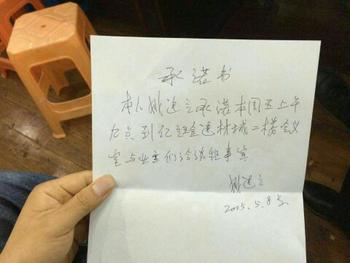 承诺书
本人姚进立承诺本周五上午
九点到红组金建材城二楼会议
室与业主们洽谈租事宜
姚进立
2015.5.8号